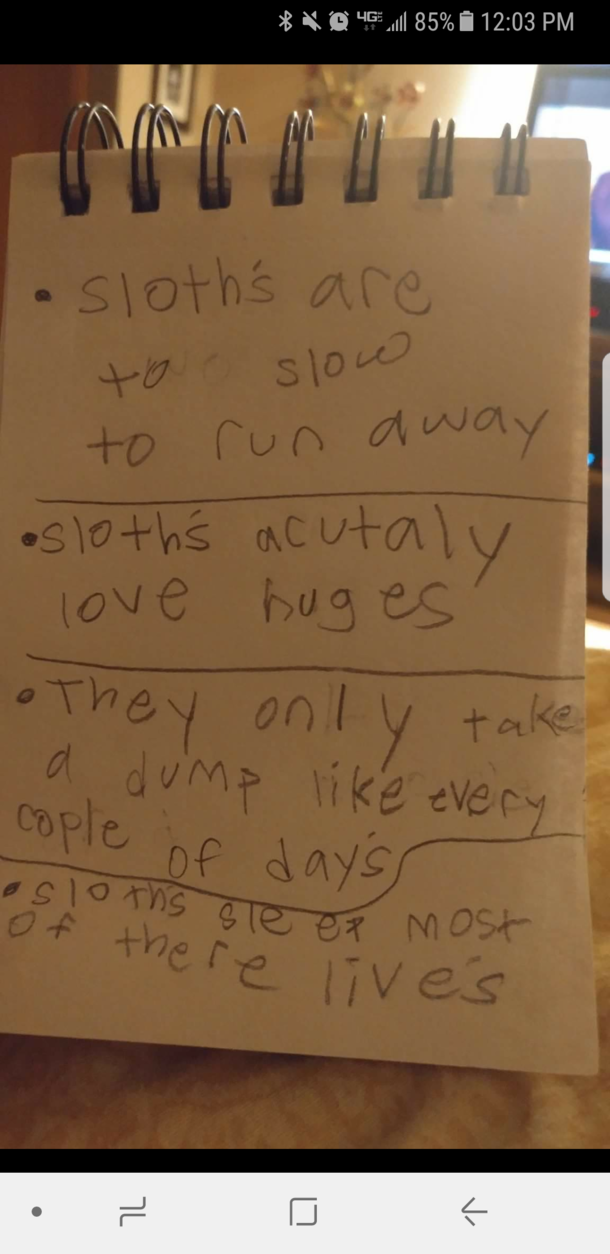 85% 12:03 PM
• sloth's are
to slow
to run away
• sloth's acutaly
love huges
• They only take
a dump like every
cople of day's
• sloth's sleep most
of there live's